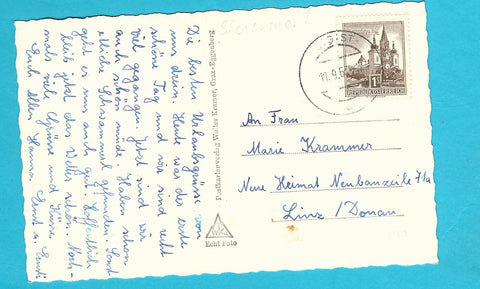 Die besten Urlaubsgrüsse von
uns drein. Heute war der erste
schöne Tag und wir sind recht
viel gegangen. Jetzt sind wir
auch schon müde. Haben schon
etliche Schwammerl gefunden. Sonst
geht es uns auch gut. Hoffentlich
bleibt jetzt das Wetter schön. Noch-
mals viele Grüsse und Küsse
Euch allen Hanna,
Postkartenverlag Walter Kramer, Graz-Göstling
WK
Echt Foto
11.9.6
1S
REPUBLIK ÖSTERREICH
An Frau
Marie Krammer
Neue Heimat Neubauzeile 71a
Linz / Donau